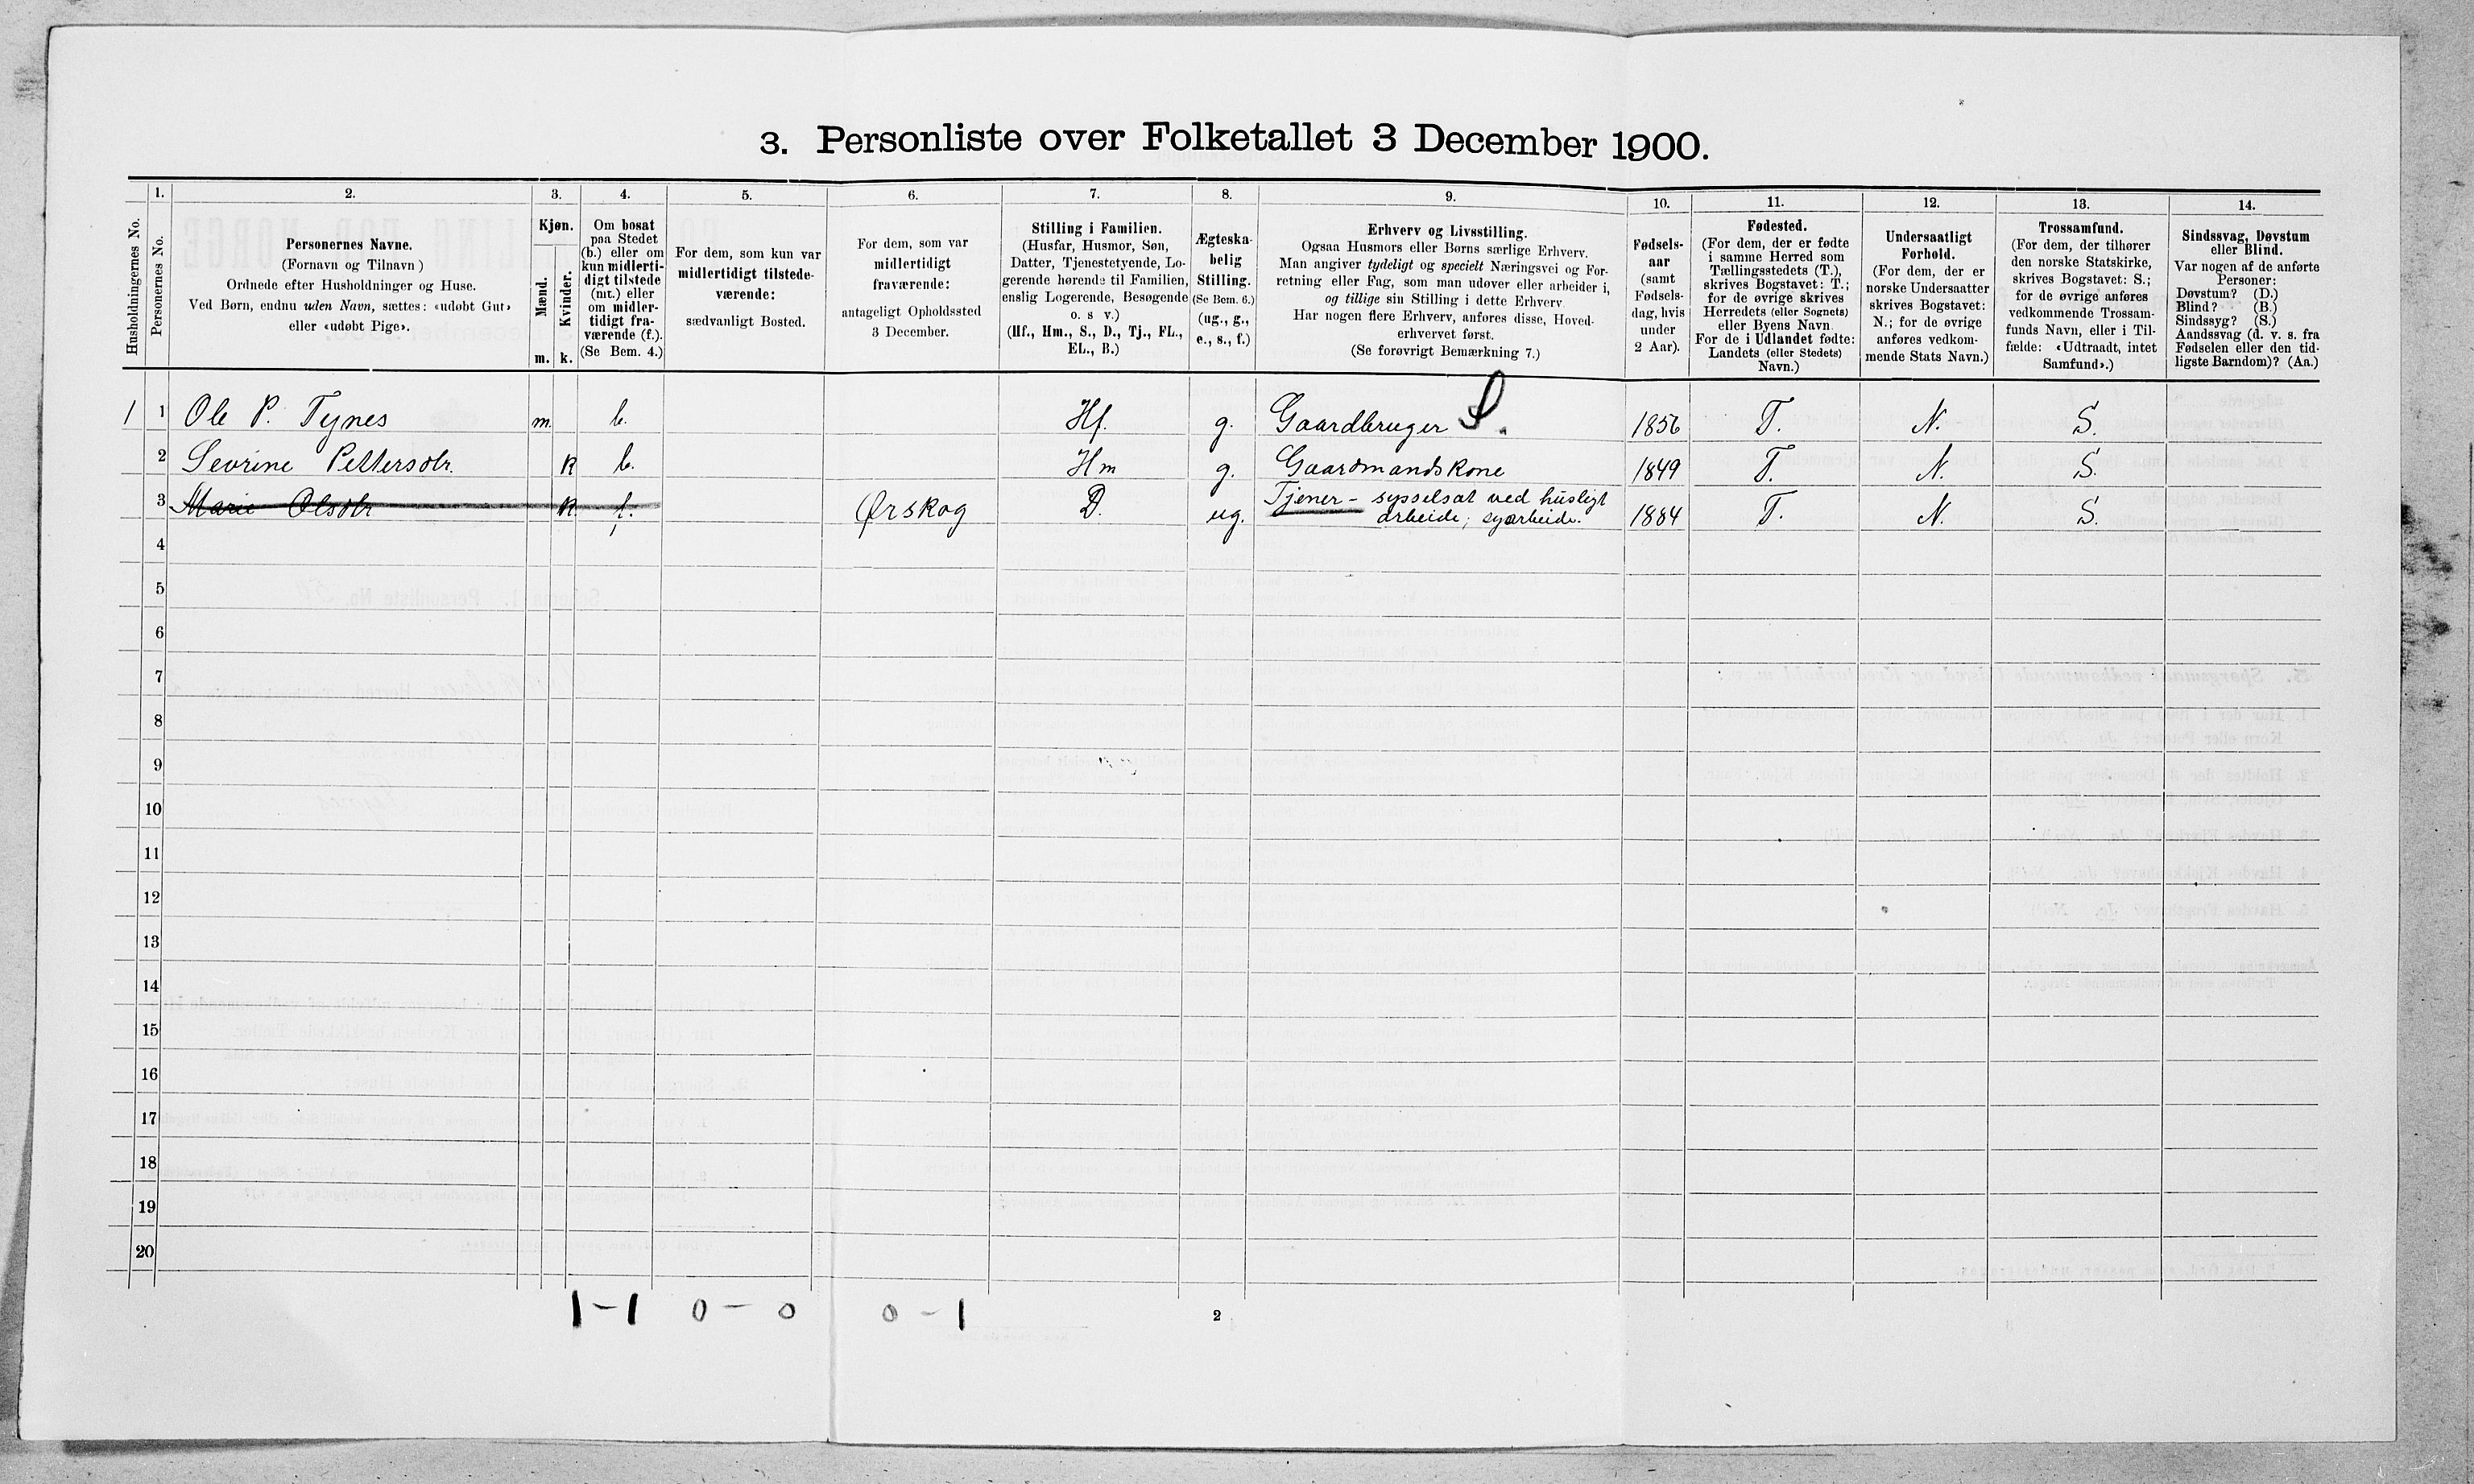 3. Personliste over Folketallet 3 December 1900.
Husholdningernes No.
1.
Personernes No.
2.
Personernes Navne.
(Fornavn og Tilnavn )
Ordnede efter Husholdninger og Huse.
Ved Børn, endnu uden Navn, sættes: «udøbt Gut»
eller «udøbt Pige».
3.
Kjøn.
Mænd.
m.
Kvinder.
k.
4.
Om bosat
paa Stedet
(b.) eller om
kun midlerti-
digt tilstede
(mt.) eller
om midler-
tidigt fra-
værende (f.).
(Se Bem. 4.)
5.
For dem, som kun var
midlertidigt tilstede-
værende:
sædvanligt Bosted.
6.
For dem, som var
midlertidigt
fraværende:
antageligt Opholdssted
3 December.
7.
Stilling i Familien.
(Husfar, Husmor, Søn,
Datter, Tjenestetyende, Lo-
gerende hørende til Familien,
enslig Logerende, Besøgende
o. s v.)
(Hf., Hm., S., D., Tj., FL.,
EL., B.)
8.
Ægteska-
belig
Stilling.
(Se Bem. 6.)
(ug., g.,
e., s., f.)
9.
Erhverv og Livsstilling.
Ogsaa Husmors eller Børns særlige Erhverv.
Man angiver tydeligt og specielt Næringsvei og For-
retning eller Fag, som man udøver eller arbeider i,
og tillige sin Stilling i dette Erhverv.
Har nogen flere Erhverv, anføres disse, Hoved-
erhvervet først.
(Se forøvrigt Bemærkning 7.)
10.
Fødsels-
aar
(samt
Fødsels-
dag, hvis
under
2 Aar).
11.
Fødested.
(For dem, der er fødte
i samme Herred som
Tællingsstedets (T.),
skrives Bogstavet: T.;
for de øvrige skrives
Herredets (eller Sognets)
eller Byens Navn.
For de i Udlandet fødte:
Landets (eller Stedets)
Navn.)
12.
Undersaatligt
Forhold.
(For dem, der er
norske Undersaatter
skrives Bogstavet:
N.; for de øvrige
anføres vedkom-
mende Stats Navn.)
13.
Trossamfund.
(For dem, der tilhører
den norske Statskirke,
skrives Bogstavet: S.;
for de øvrige anføres
vedkommende Trossam-
funds Navn, eller i Til-
fælde: «Udtraadt, intet
Samfund».)
14.
Sindssvag, Døvstum
eller Blind.
Var nogen af de anførte
Personer:
Døvstum? (D.)
Blind? (B.)
Sindssyg? (S.)
Aandssvag (d. v. s. fra
Fødselen eller den tid-
ligste Barndom)? (Aa.)
1 1 Ole P. Tynes m. b. Hf. g. Gaardbruger S. 1856 T. N. S.
2 Sevrine Pettersdtr. k b. Hm g. Gaardmandskone 1849 T. N. S.
3 Marie Olsdtr k. f. Ørskog D. ug. Tjener - sysselsat ved husligt
arbeide; syarbeide. 1884 T. N. S.
4
5
6
7
8
9
10
11
12
13
14
15
16
17
18
19
20
1-1 0-0 0-1 2